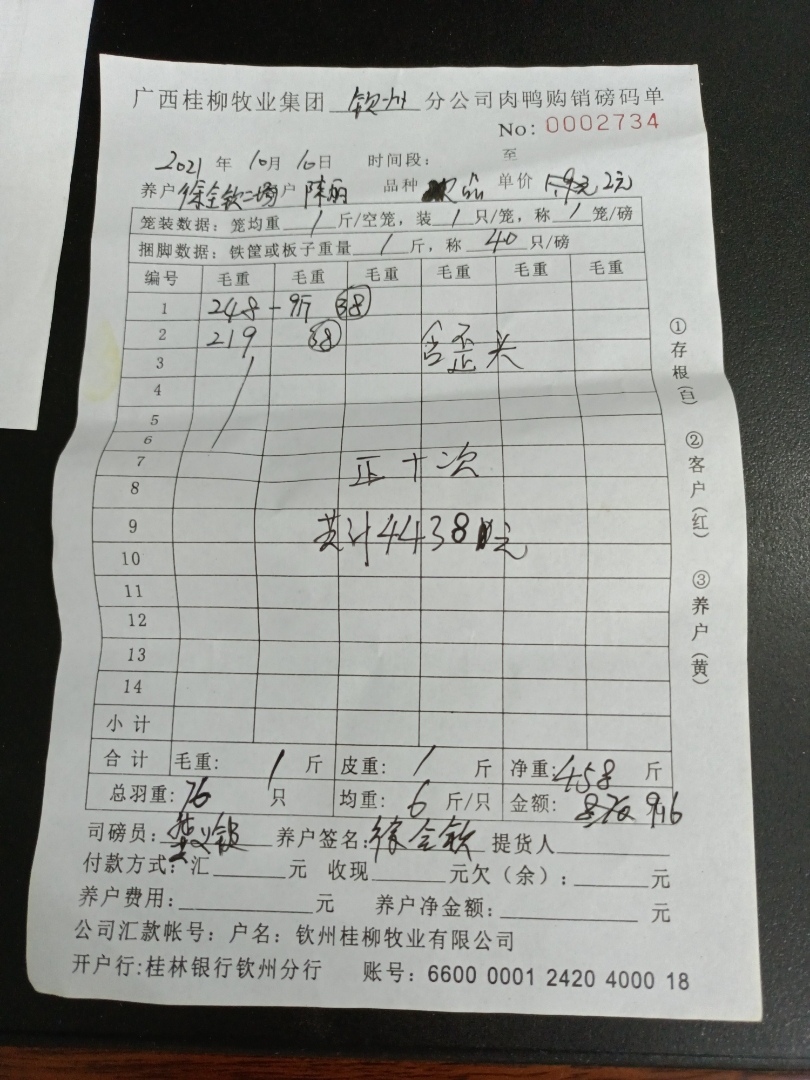 广西桂柳牧业集团 钦州 分公司肉鸭购销磅码单
No: 0002734
2021 年 10月 10日 时间段: 至
养户 徐全钦二场 户 陈丽 品种 次品 单价 2元
笼装数据: 笼均重 / 斤/空笼, 装 / 只/笼, 称 / 笼/磅
捆脚数据: 铁筐或板子重量 / 斤, 称 40 只/磅
编号 毛重 毛重 毛重 毛重 毛重 毛重
1 248 - 9斤 38
2 219 38
3 含歪头
4
5
6
7 正十次
8
9 共计4438元
10
11
12
13
14
小计
合计 毛重: / 斤 皮重: / 斤 净重: 458 斤
总羽重: 76 只 均重: 6 斤/只 金额: 916
司磅员: 养户签名: 徐全钦 提货人
付款方式: 汇 元 收现 元欠(余): 元
养户费用: 元 养户净金额: 元
公司汇款帐号: 户名: 钦州桂柳牧业有限公司
开户行: 桂林银行钦州分行 账号: 6600 0001 2420 4000 18
①存根(白) ②客户(红) ③养户(黄)